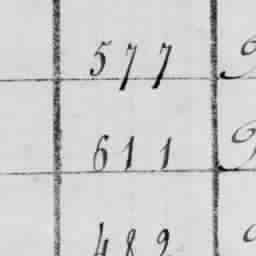 577
611
482